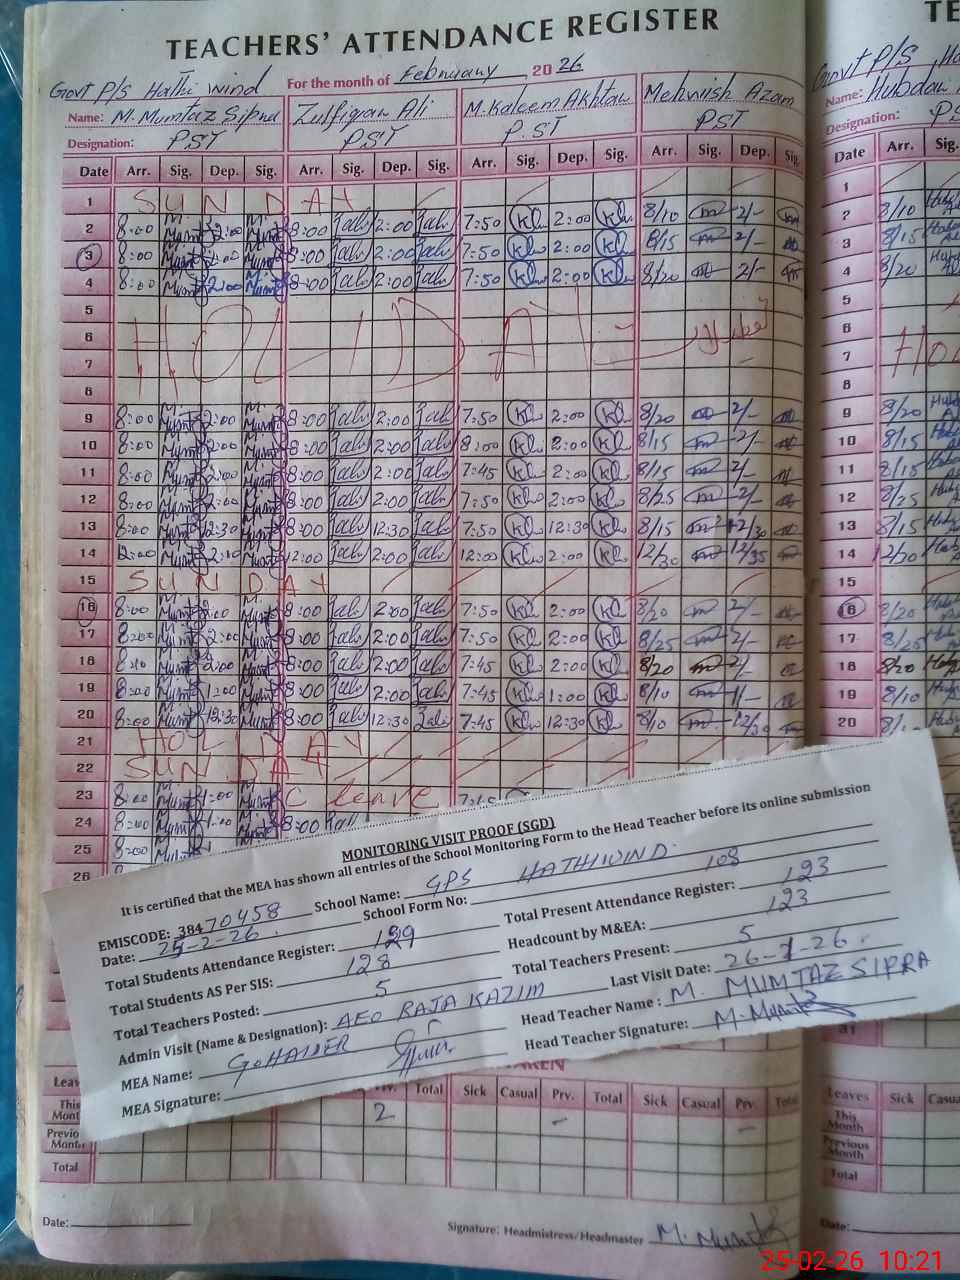 TEACHERS' ATTENDANCE REGISTER
Govt P/S Hathi wind For the month of February 2026
Name: M. Mumtaz Sipra Zulfiqar Ali M. Kaleem Akhtar Mehwish Azam
Designation: PST PST P.ST PST
Date Arr. Sig. Dep. Sig. Arr. Sig. Dep. Sig. Arr. Sig. Dep. Sig. Arr. Sig. Dep. Sig.
1 SUNDAY
2 8:00 M. Mumtaz 2:00 M. Mumtaz 8:00 2:00 7:50 2:00 8/10 2/-
3 8:00 Mumtaz 2:00 Mumtaz 8:00 2:00 7:50 2:00 8/15 2/-
4 8:00 Mumtaz 2:00 Mumtaz 8:00 2:00 7:50 2:00 8/20 2/-
5
6 HOLIDAY
7
8
9 8:00 M. Mumtaz 2:00 M. Mumtaz 8:00 2:00 7:50 2:00 8/20 2/-
10 8:00 Mumtaz 2:00 Mumtaz 8:00 2:00 8:00 2:00 8/15 2/-
11 8:00 Mumtaz 2:00 Mumtaz 8:00 2:00 7:45 2:00 8/15 2/-
12 8:00 Mumtaz 2:00 Mumtaz 8:00 2:00 7:50 2:00 8/25 2/-
13 8:00 Mumtaz 12:30 Mumtaz 8:00 12:30 7:50 12:30 8/15 12/30
14 12:00 Mumtaz 2:00 Mumtaz 12:00 2:00 12:00 2:00 12/30 12/35
15 SUNDAY
16 8:00 Mumtaz 2:00 Mumtaz 8:00 2:00 7:50 2:00 8/20 2/-
17 8:00 Mumtaz 2:00 Mumtaz 8:00 2:00 7:50 2:00 8/25 2/-
18 Mumtaz 2:00 Mumtaz 8:00 2:00 7:45 2:00 8/20 2/-
19 8:00 Mumtaz 1:00 Mumtaz 8:00 2:00 7:45 1:00 8/10 1/-
20 8:00 Mumtaz 12:30 Mumtaz 8:00 12:30 7:45 12:30 8/10 12/30
21 HOLIDAY
22 SUNDAY
23 8:00 Mumtaz 1:00 Mumtaz C leave
24 8:00 Mumtaz 1:00 Mumtaz 8:00
25 8:00 Mumtaz
26
MONITORING VISIT PROOF (SGD)
It is certified that the MEA has shown all entries of the School Monitoring Form to the Head Teacher before its online submission
EMISCODE: 38470458 School Name: GPS HATHIWIND.
Date: 25-2-26. School Form No: 108
Total Students Attendance Register: 129 Total Present Attendance Register: 123
Total Students AS Per SIS: 128 Headcount by M&EA: 123
Total Teachers Posted: 5 Total Teachers Present: 5
Admin Visit (Name & Designation): AEO RAJA KAZIM Last Visit Date: 26-1-26.
MEA Name: G. HAIDER Head Teacher Name: M. MUMTAZ SIPRA
MEA Signature: Head Teacher Signature: M. Mumtaz
TAKEN
Total Sick Casual Prv. Total Sick Casual Prv. Total
This Month 2 - -
Previous Month
Total
Date: Signature: Headmistress/Headmaster M. Mumtaz
TE
Govt P/S
Name: Hubdar
Designation:
Date Arr. Sig.
1
2 8/10
3 8/15
4 8/20
5
6
7
8
9 8/20
10 8/15
11 8/15
12 8/25
13 8/15
14 12/30
15
16 8/20
17 8/25
18 8/20
19 8/10
20
Leaves Sick
This Month
Previous Month
Total
Date:
25-02-26 10:21